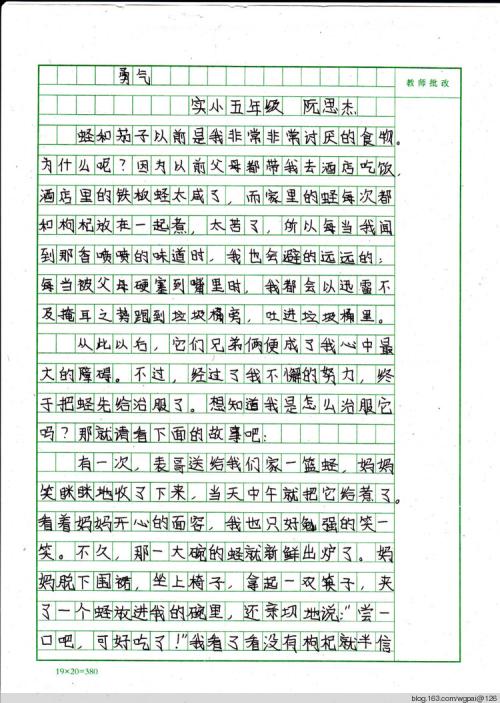 勇气
教师批改
实小五年级 阮思杰
蛏和茄子以前是我非常非常讨厌的食物。
为什么呢？因为以前父母都带我去酒店吃饭，
酒店里的铁板蛏太咸了，而家里的蛏每次都
和枸杞放在一起煮，太苦了，所以每当我闻
到那香喷喷的味道时，我也会避的远远的；
每当被父母硬塞到嘴里时，我都会以迅雷不
及掩耳之势跑到垃圾桶旁，吐进垃圾桶里。
从此以后，它们兄弟俩便成了我心中最
大的障碍。不过，经过了我不懈的努力，终
于把蛏先给治服了。想知道我是怎么治服它
吗？那就请看下面的故事吧：
有一次，表哥送给我们家一篮蛏，妈妈
笑眯眯地收了下来，当天中午就把它给煮了。
看着妈妈开心的面容，我也只好勉强的笑一
笑。不久，那一大碗的蛏就新鲜出炉了。妈
妈脱下围裙，坐上椅子，拿起一双筷子，夹
了一个蛏放进我的碗里，还亲切地说："尝一
口吧，可好吃了！"我看了看没有枸杞就半信
19×20=380
blog.163.com/wgpai@126